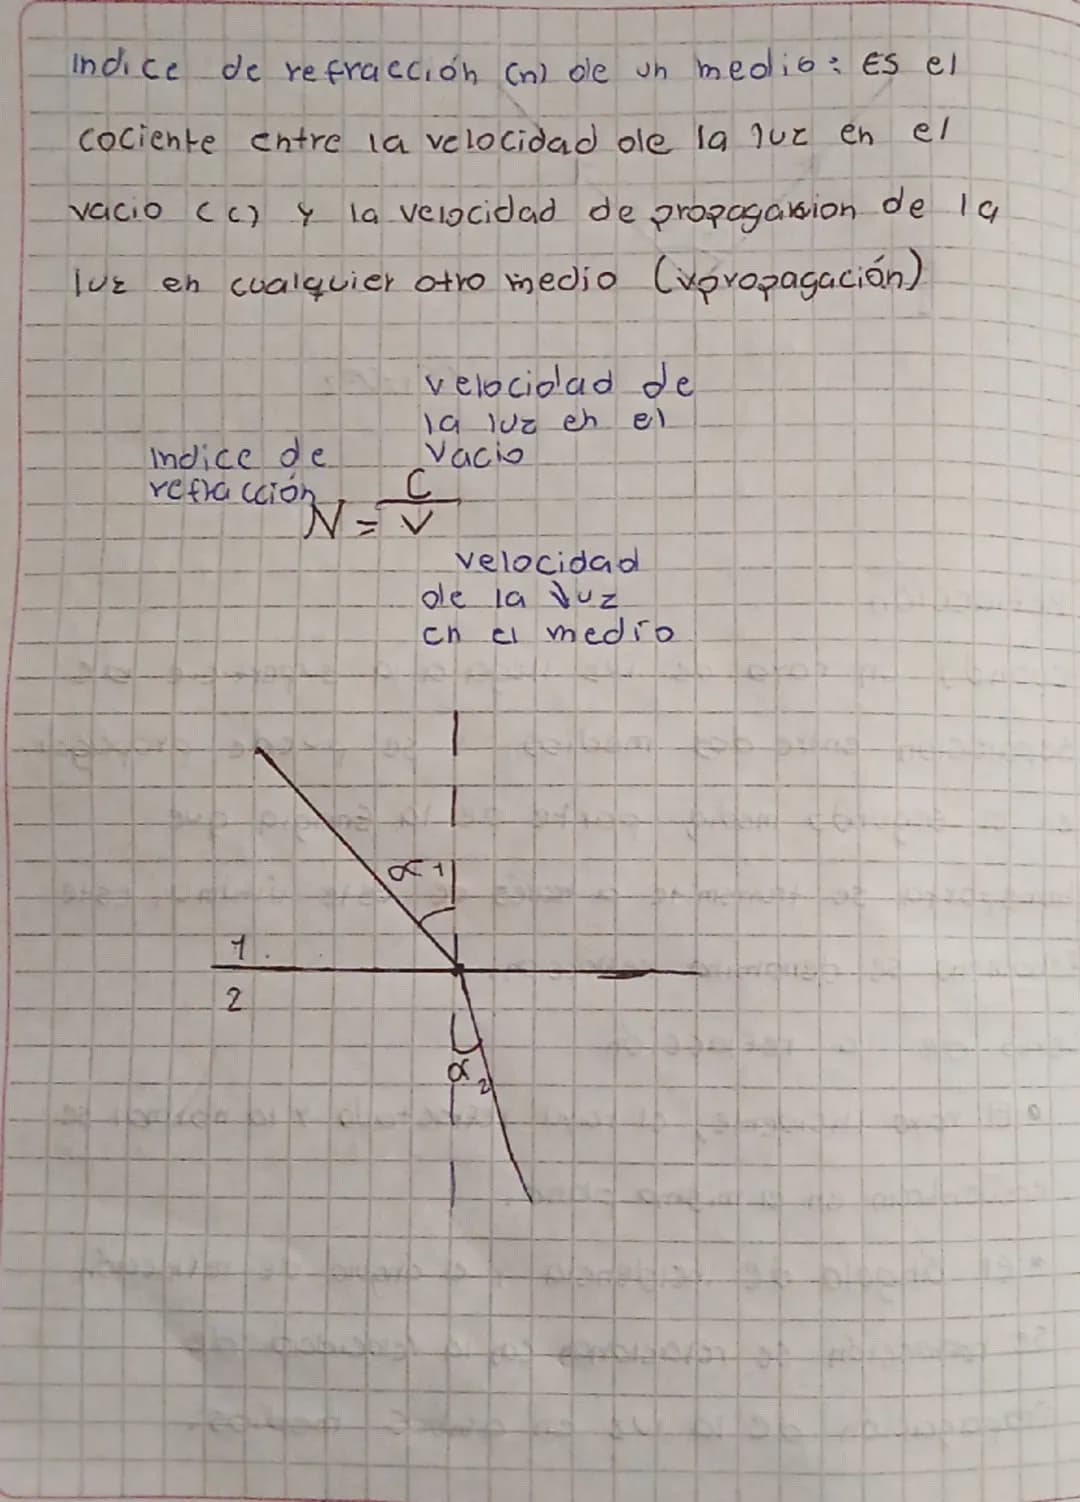 Indice de refracción (n) de un medio: Es el
cociente entre la velocidad de la luz en el
vacio (c) y la velocidad de propagasion de la
luz en cualquier otro medio (vpropagación)
velocidad de
la luz en el
vacio
Indice de
refracción
N = C
V
velocidad
de la luz
en el medio
α1
1
2
α2